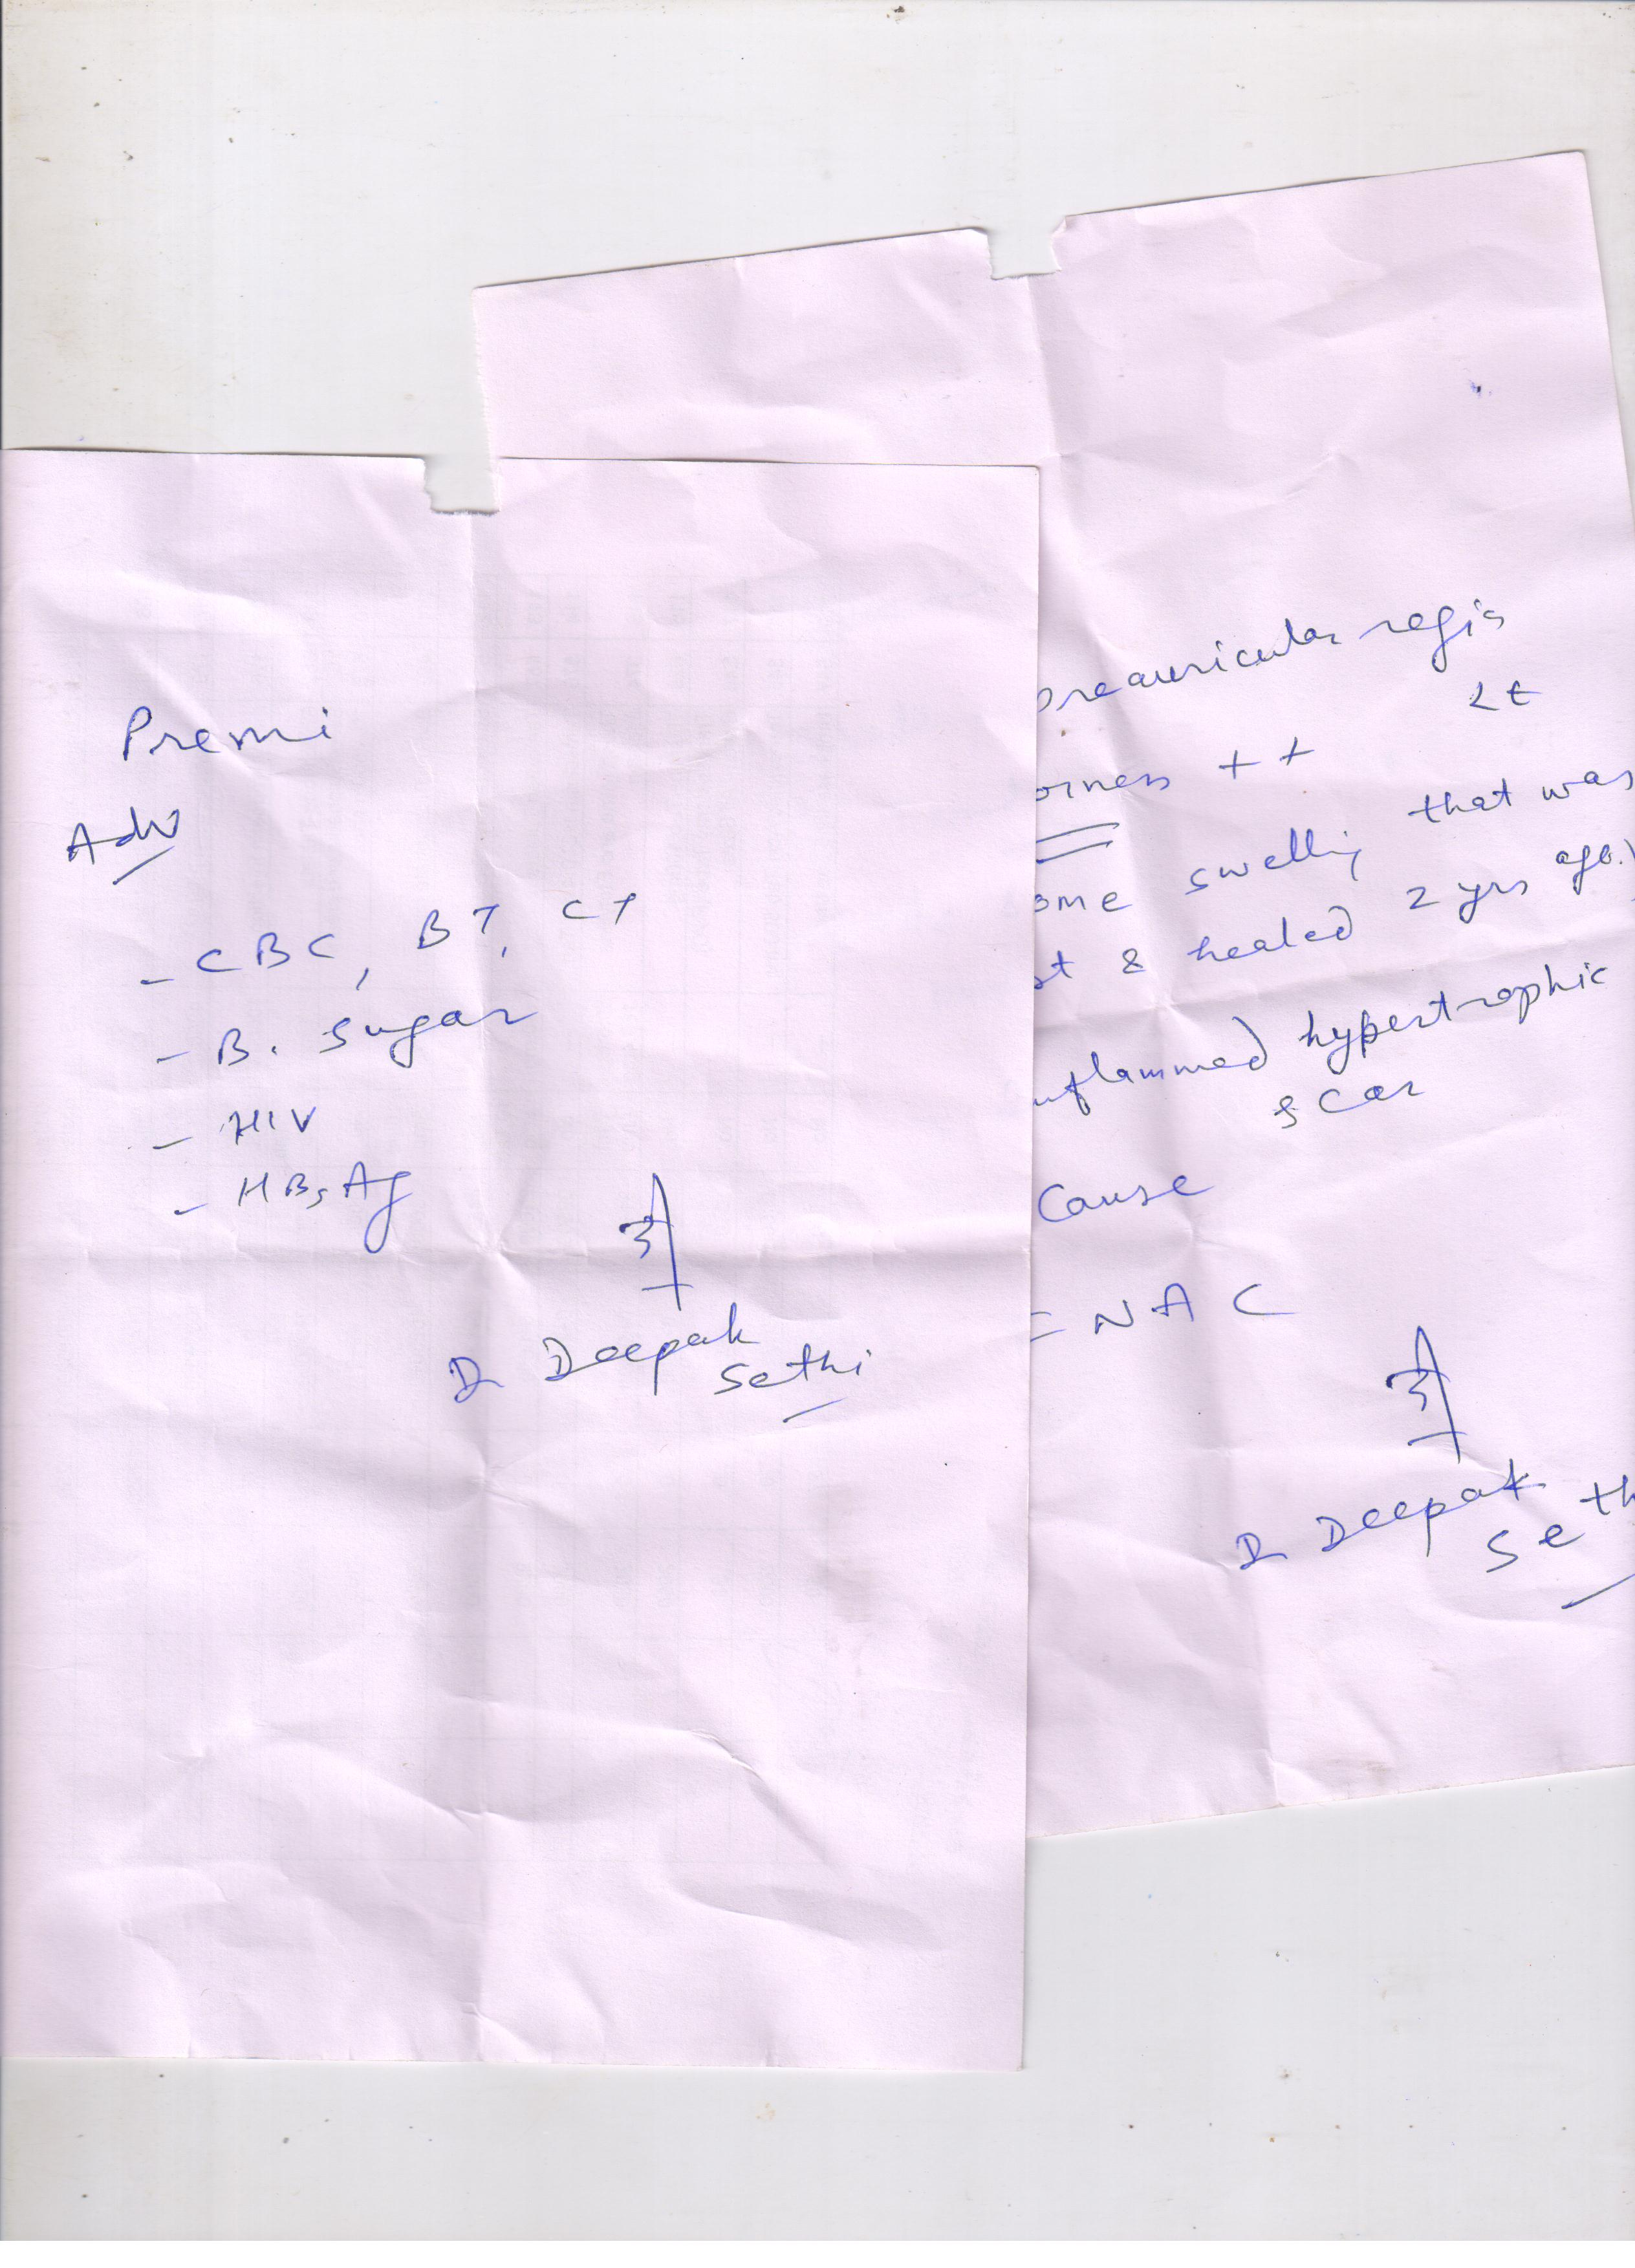 Premi
Adv
- CBC, BT, CT
- B. sugar
- HIV
- HBsAg
Dr Deepak
Sethi
preauricular regio
Lt
orness ++
ome swelling that was
st & healed 2 yrs ago.)
inflammed hypertrophic
scar
Cause
= NAC
Dr Deepak
Seth